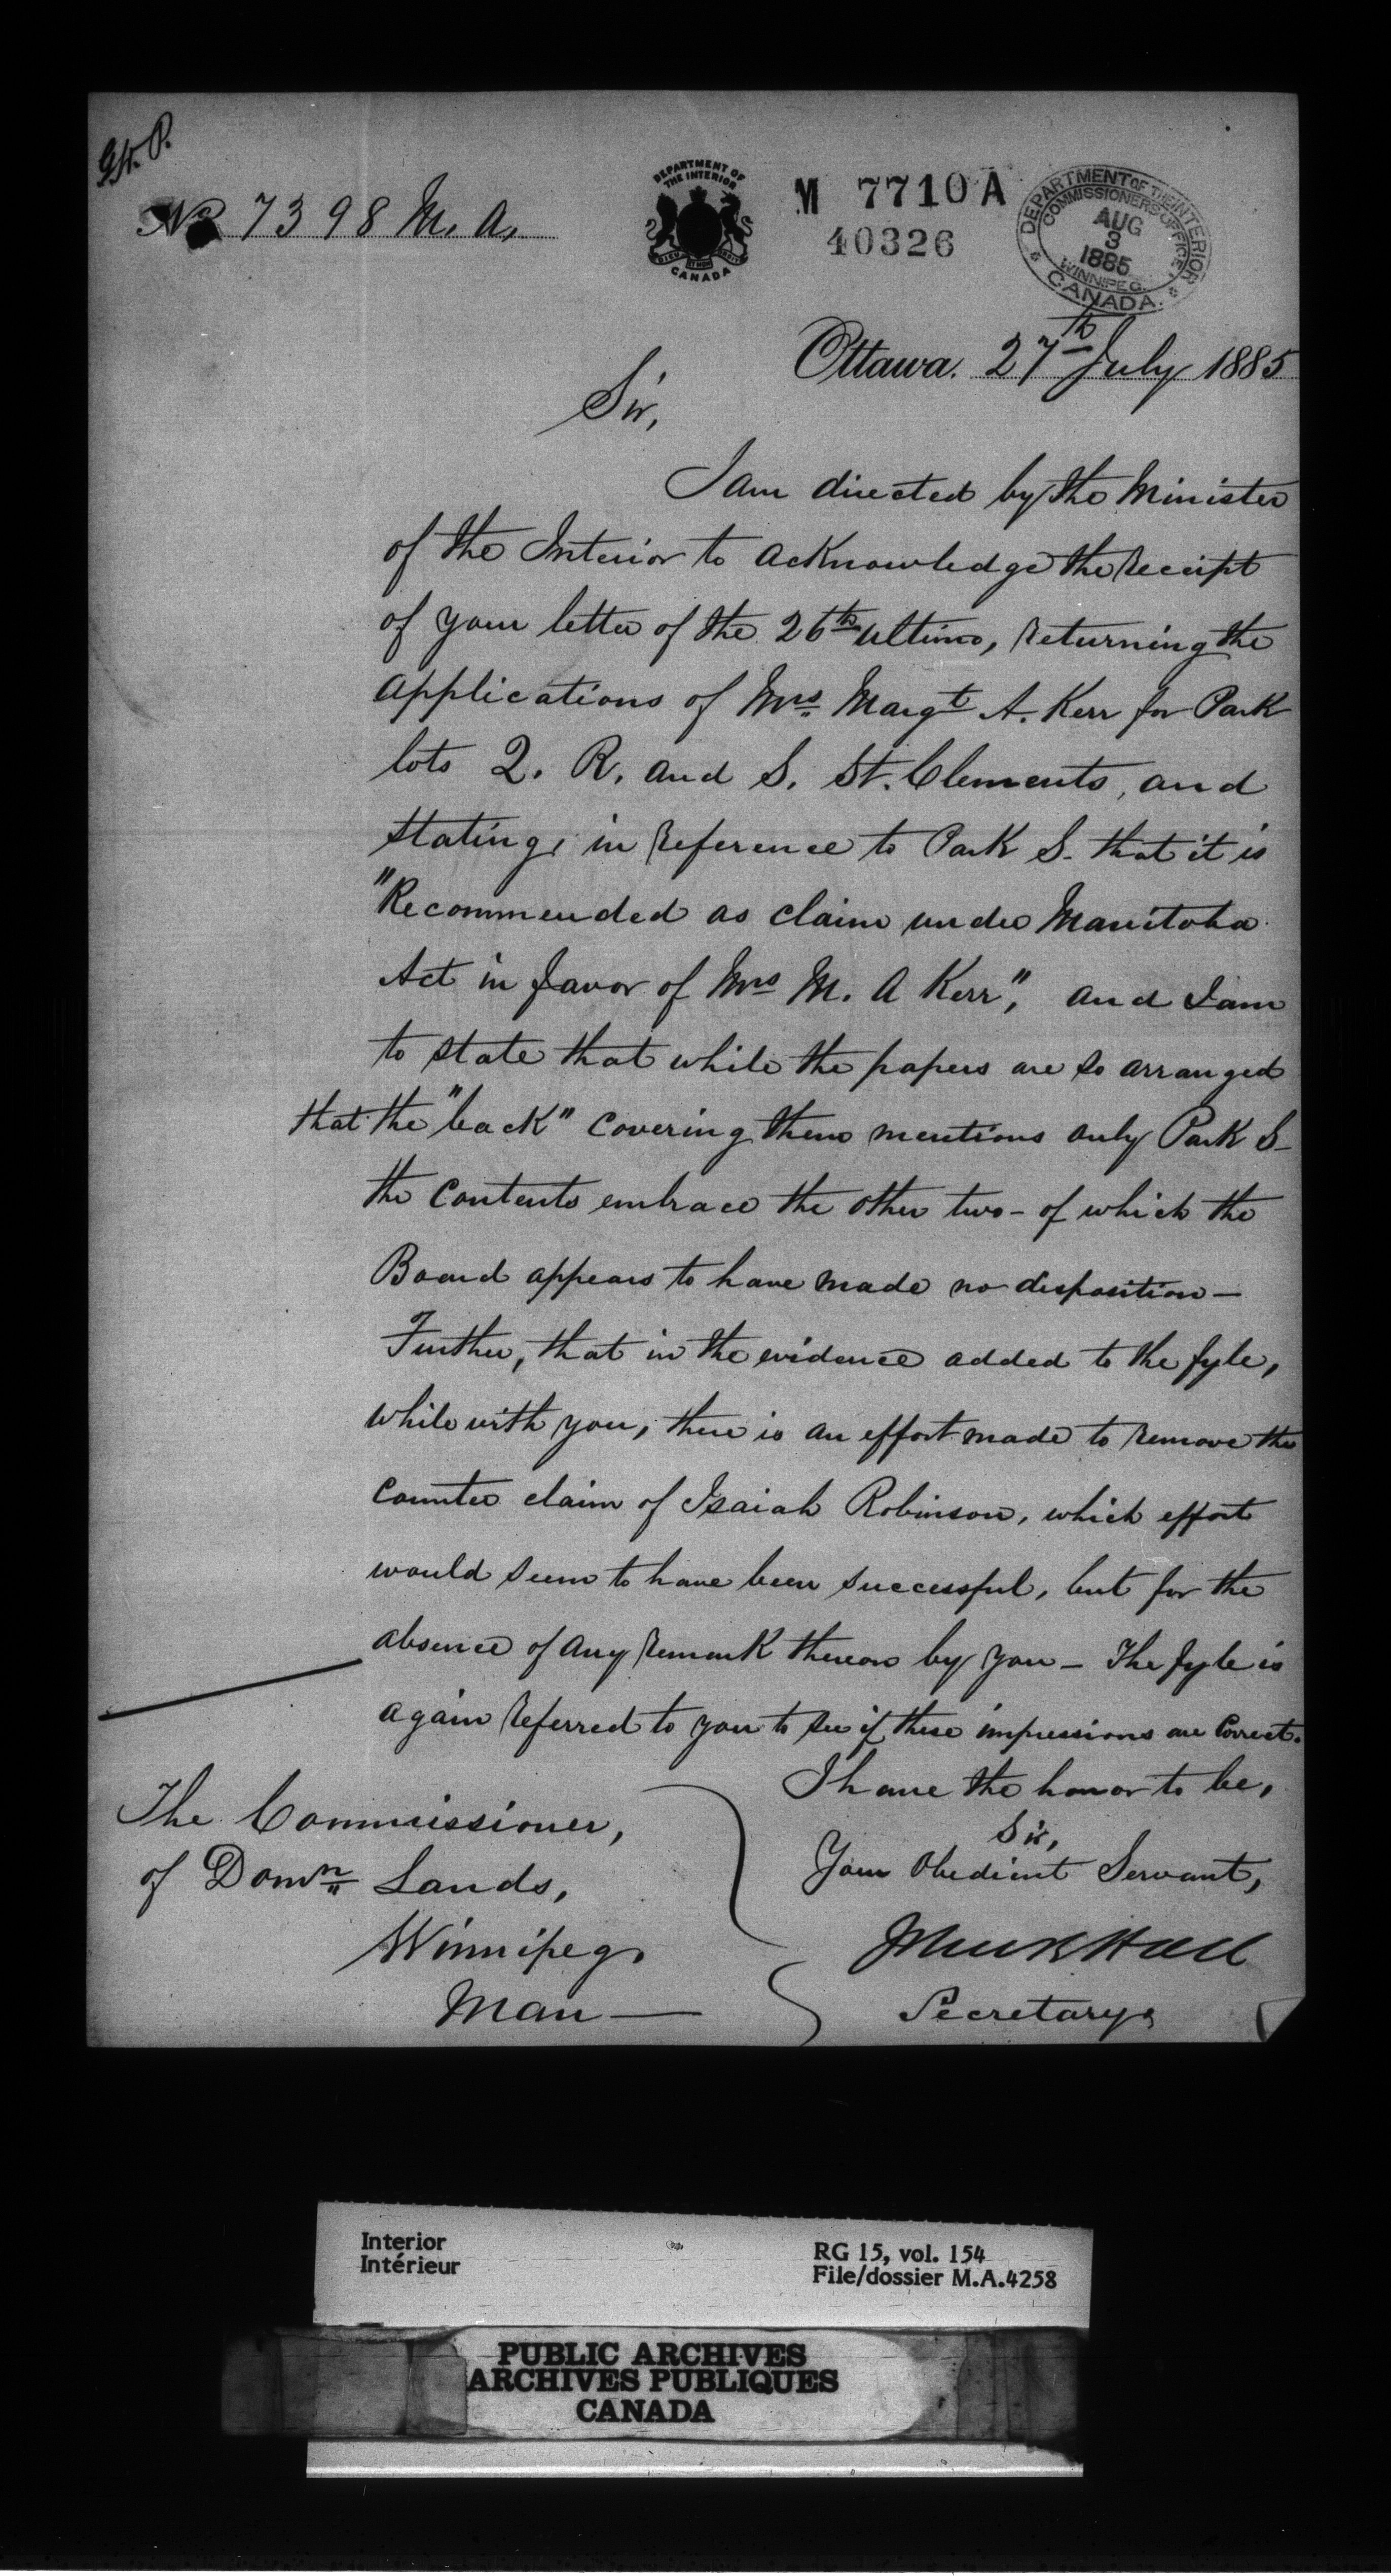 No 7398 M. A.
DEPARTMENT OF
THE INTERIOR
CANADA
M 7710 A
40326
DEPARTMENT OF THE INTERIOR
COMMISSIONERS OFFICE
AUG
3
1885
WINNIPEG.
CANADA.
Ottawa. 27th July 1885
Sir,
I am directed by the Minister
of the Interior to acknowledge the receipt
of your letter of the 26th ultimo, returning the
applications of Mrs. Margt A. Kerr for Park
lots Q. R. and S. St. Clements, and
stating, in reference to Park S. that it is
"Recommended as claim under Manitoba
Act in favor of Mrs M. A Kerr", and I am
to state that while the papers are so arranged
that the "back" covering them mentions only Park S-
the contents embrace the other two - of which the
Board appears to have made no disposition -
Further, that in the evidence added to the fyle,
while with you, there is an effort made to remove the
counter claim of Isaiah Robinson, which effort
would seem to have been successful, but for the
absence of any remark thereon by you - The fyle is
again referred to you to see if these impressions are correct.
I have the honor to be,
Sir,
Your Obedient Servant,
John R Hall
Secretary.
The Commissioner,
of Domn Lands,
Winnipeg.
Man —
Interior
Intérieur
RG 15, vol. 154
File/dossier M.A.4258
PUBLIC ARCHIVES
ARCHIVES PUBLIQUES
CANADA